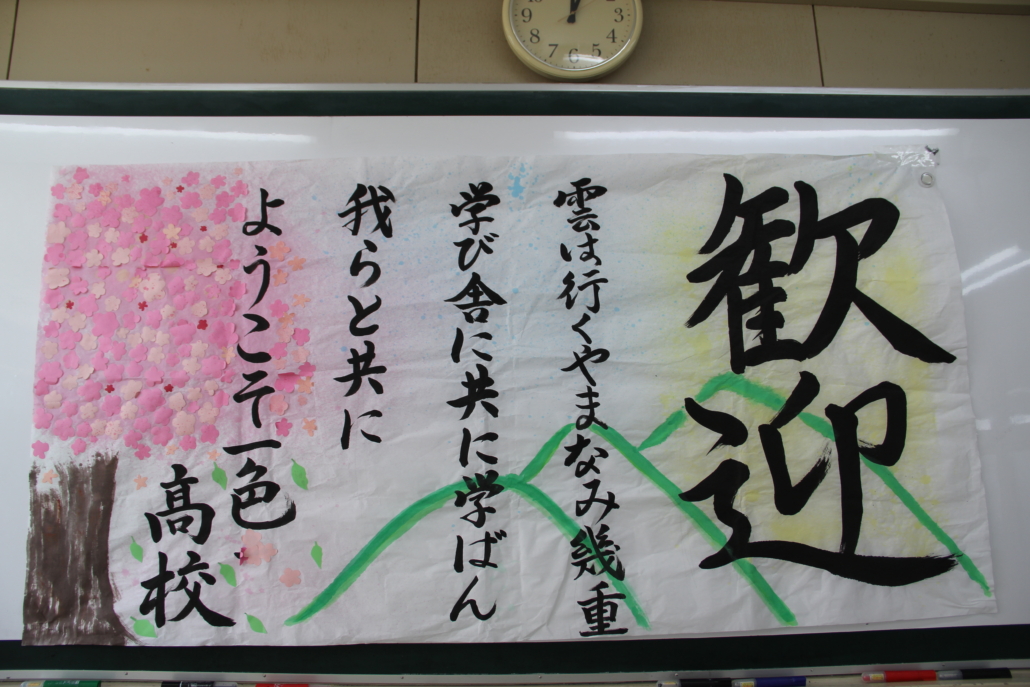 歓迎
雲は行くやまなみ幾重
学び舎に共に学ばん
我らと共に
ようこそ一色
高校
9
8
7
6
5
4
3